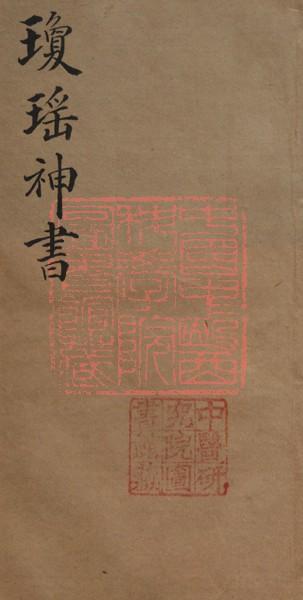 瓊瑤神書
中國中醫
科學院
圖書館藏
中醫研
究院圖
書